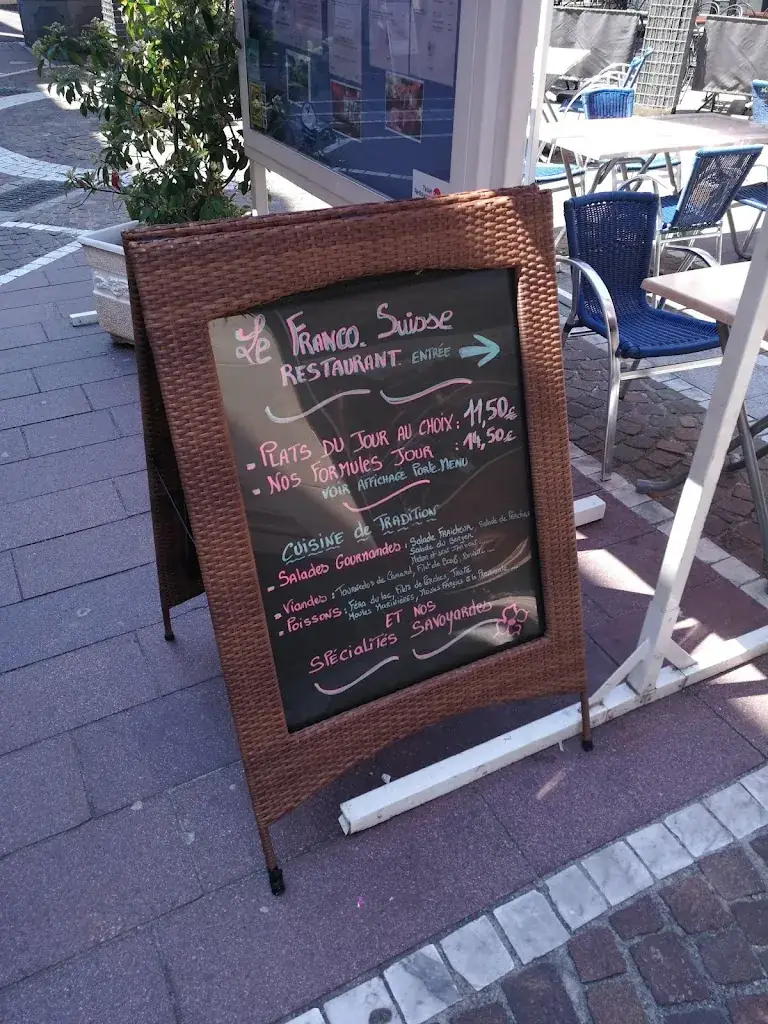 Le Franco-Suisse
RESTAURANT ENTRÉE →
- PLATS DU JOUR AU CHOIX : 11,50€
- NOS FORMULES JOUR : 14,50€
VOIR AFFICHAGE PORTE-MENU
CUISINE de TRADITION
- Salades Gourmandes : Salade Fraîcheur, Salade de Perches
Salade du Berger
Melon et son Jambon ...
- Viandes : Tournedos de Canard, Filet de Boeuf,
- Poissons : Féra du lac, Filets de Perches, Truite
Moules Marinières, Moules Farcies à la Provençale ...
ET NOS
SPÉCIALITÉS SAVOYARDES